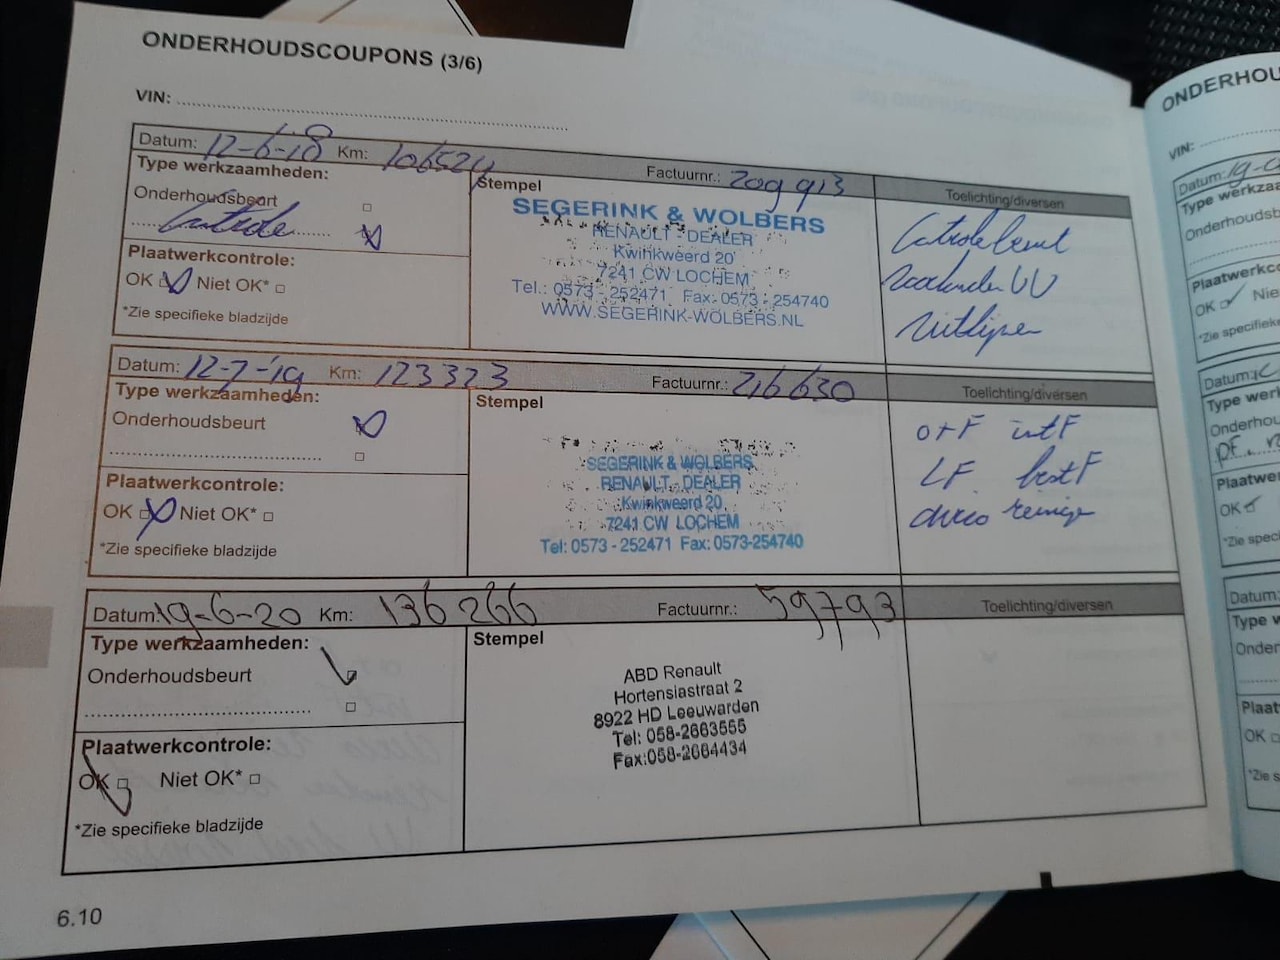 ONDERHOUDSCOUPONS (3/6)
VIN:
Datum: 12-6-18 Km: 106524 Factuurnr.: 209913
Type werkzaamheden:
Onderhoudsbeurt
Controle
Plaatwerkcontrole:
OK Niet OK*
*Zie specifieke bladzijde
Stempel
SEGERINK & WOLBERS
RENAULT - DEALER
Kwinkweerd 20
7241 CW LOCHEM
Tel.: 0573 - 252471 Fax: 0573 - 254740
WWW.SEGERINK-WOLBERS.NL
Toelichting/diversen
Controlebeurt
Uitlijnen
Datum: 12-7-'19 Km: 123323 Factuurnr.: 216630
Type werkzaamheden:
Onderhoudsbeurt
Plaatwerkcontrole:
OK Niet OK*
*Zie specifieke bladzijde
Stempel
SEGERINK & WOLBERS
RENAULT - DEALER
Kwinkweerd 20
7241 CW LOCHEM
Tel: 0573 - 252471 Fax: 0573-254740
Toelichting/diversen
O+F intF
LF
airco reinige
Datum: 19-6-20 Km: 136266 Factuurnr.: 59793
Type werkzaamheden:
Onderhoudsbeurt
Plaatwerkcontrole:
OK Niet OK*
*Zie specifieke bladzijde
Stempel
ABD Renault
Hortensiastraat 2
8922 HD Leeuwarden
Tel: 058-2663555
Fax:058-2664434
Toelichting/diversen
6.10
ONDERHOU
VIN:
Datum:
Type werkza
Onderhoudsb
Plaatwerkco
OK Nie
*Zie specifie
Datum:
Type werk
Onderhou
Plaatwe
OK
*Zie spec
Datum:
Type w
Onder
Plaat
OK
*Zie s